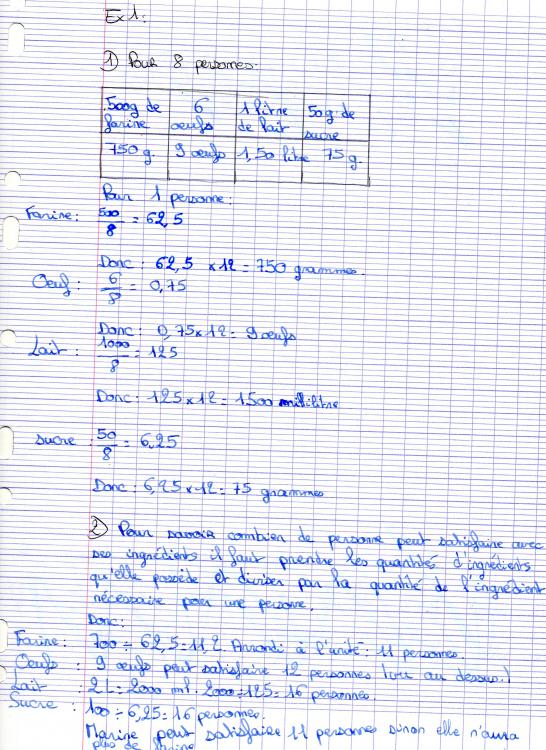 Ex 1:
1) Pour 8 personnes.
500g de farine 6 oeufs 1 litre de lait 50g de sucre
750 g. 9 oeufs 1,50 litre 75 g.
Pour 1 personne:
Farine: 500/8 = 62,5
Donc: 62,5 × 12 = 750 grammes.
Oeuf: 6/8 = 0,75
Donc: 0,75 × 12 = 9 oeufs
Lait: 1000/8 = 125
Donc: 125 × 12 = 1500 millilitre
sucre: 50/8 = 6,25
Donc: 6,25 × 12 = 75 grammes
2) Pour savoir combien de personne peut satisfaire avec
ses ingrédients il faut prendre les quantités d'ingrédients
qu'elle possède et diviser par la quantité de l'ingrédient
nécessaire pour une personne.
Donc:
Farine: 700 ÷ 62,5 = 11,2. Arrondi à l'unité: 11 personnes.
Oeufs: 9 oeufs peut satisfaire 12 personnes (vu au dessus.)
Lait: 2L = 2000 ml. 2000 ÷ 125 = 16 personnes.
Sucre: 100 ÷ 6,25 = 16 personnes.
Marine peut satisfaire 11 personnes sinon elle n'aura
plus de farine